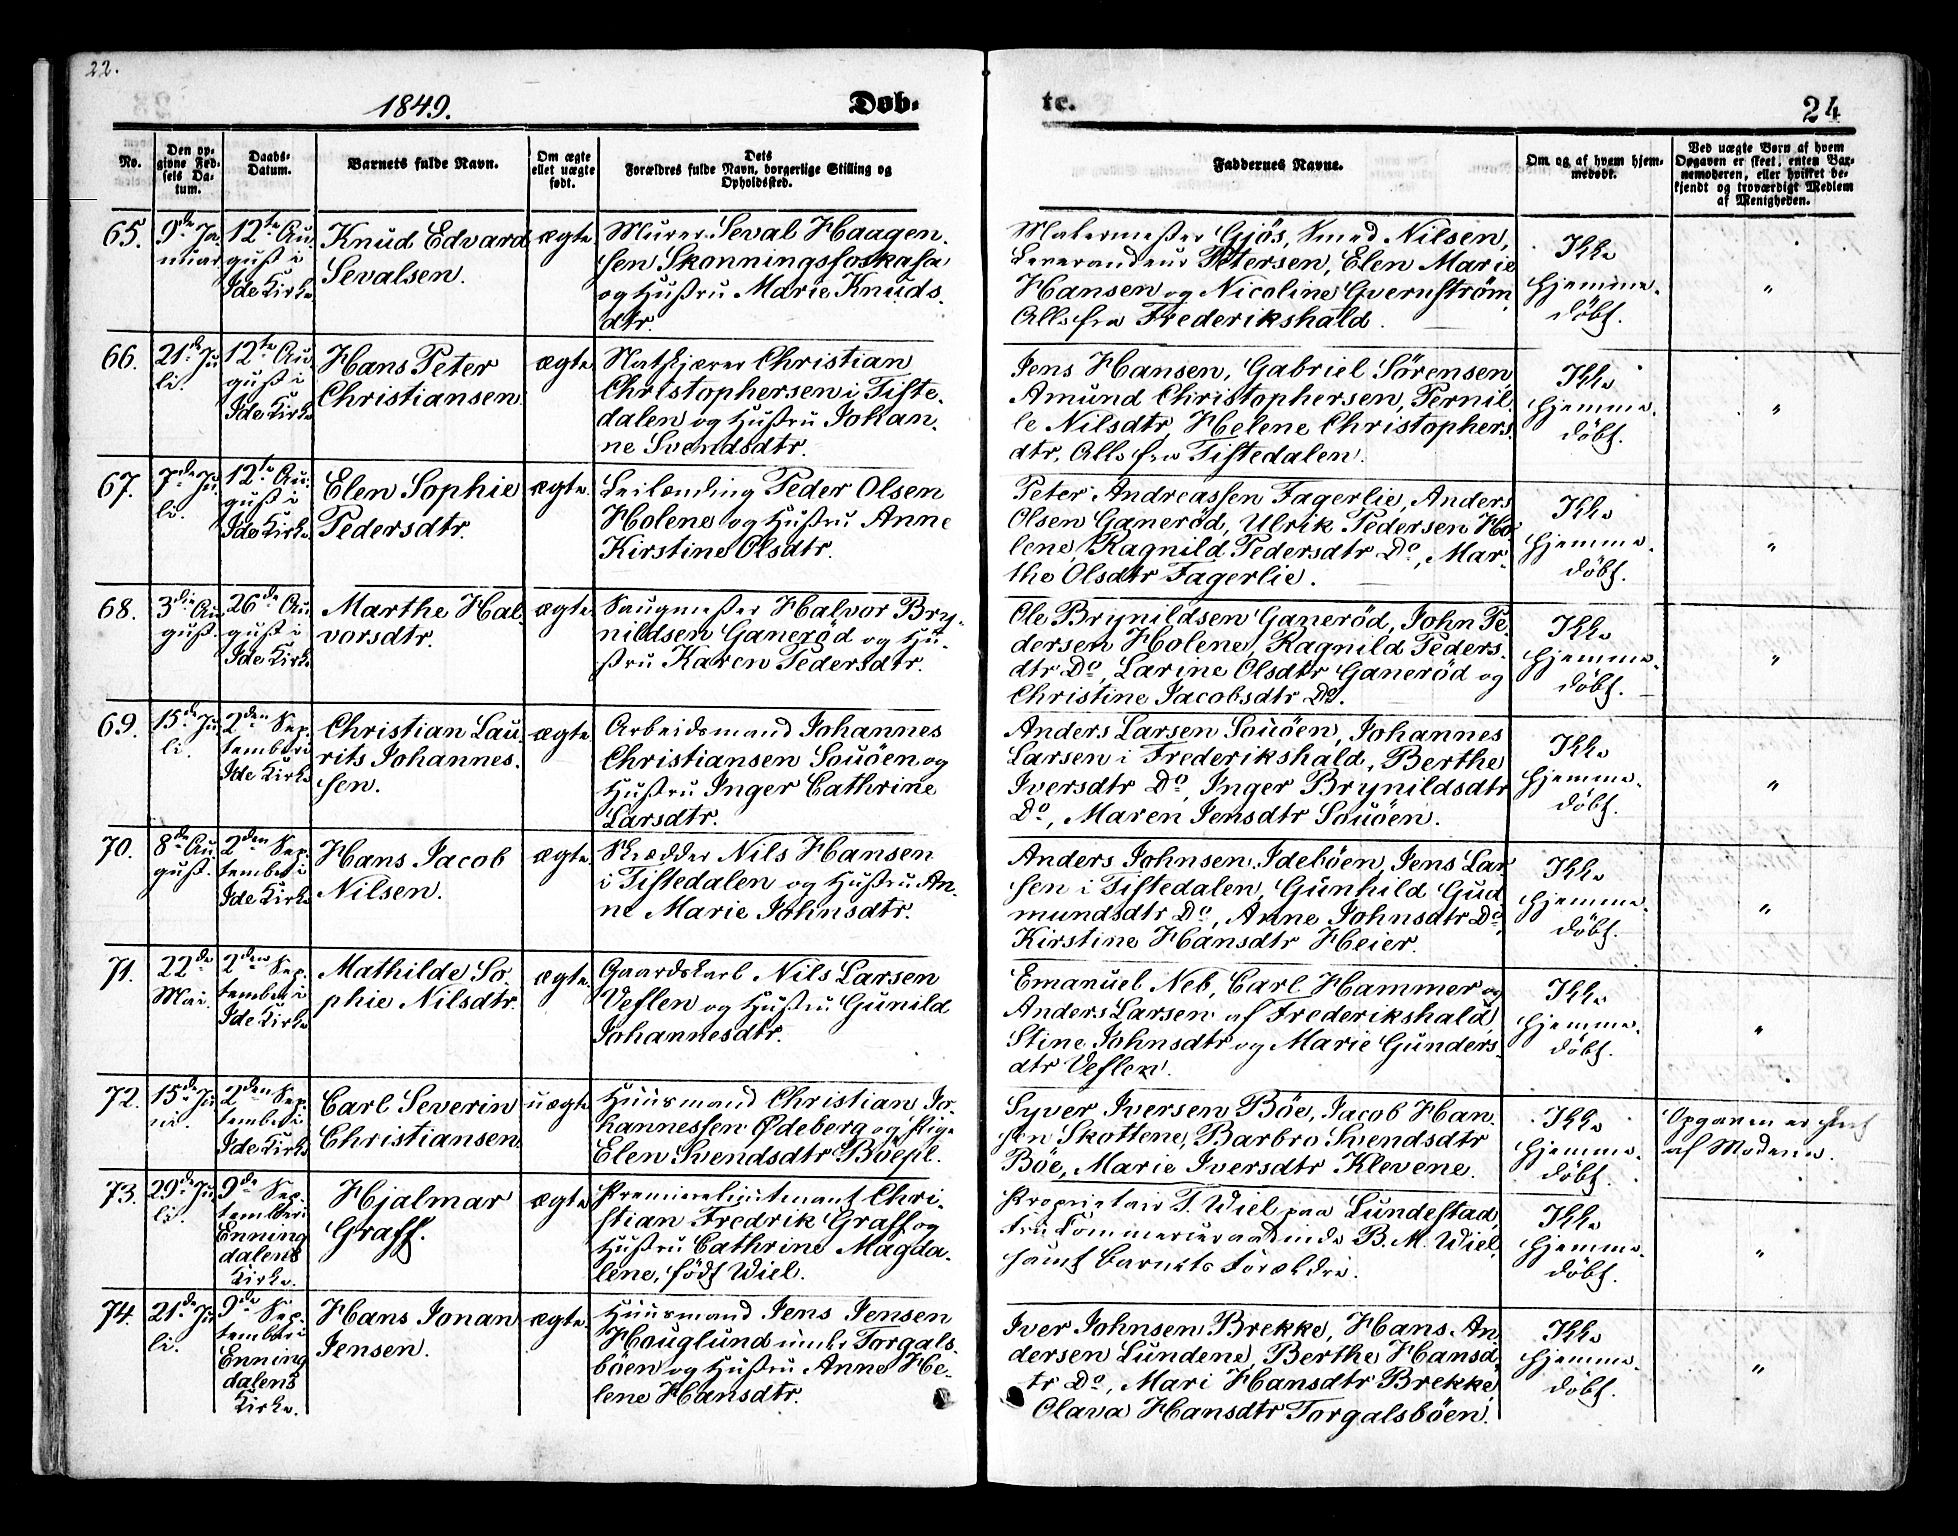 22.
1849.
Døb-
te.
24
No.
Den op-
givne Fød-
sels Da-
tum.
Daabs-
Datum.
Barnets fulde Navn.
Om ægte
ellet uægte
født.
Dets
Forældres fulde Navn, borgerlige Stilling og
Opholdssted.
Faddernes Navne.
Om og af hvem hjem-
medøbt.
Ved uægte Børn af hvem
Opgaven er skeet, enten Bar-
nemoderen, eller hvilket be-
kjendt og troværdigt Medlem
af Menigheden.
65.
9de Ja-
nuar
12te Au-
gust i
Ide Kirke
Knud Edvard
Sevalsen.
ægte
Murer Seval Haagen-
sen Skonningsfoskasa
og Hustru Marie Knuds-
dtr.
Malermester Gjös, Smed Nilsen,
Leverandeur Petersen, Elen Marie
Hansen og Nicoline Gvernström,
Alle fra Frederikshald.
Ikke
hjemme-
döbt.
"
66.
21de Ju-
li.
12te Au-
gust i
Ide Kirke
Hans Peter
Christiansen
ægte
Christian
Christophersen i Tiste-
dalen og Hustru Johan-
ne Svendsdtr.
Jens Hansen, Gabriel Sörensen,
Amund Christophersen, Pernil-
le Nilsdtr, Helene Christophers-
dtr, Alle fra Tistedalen.
Ikke
hjemme-
döbt.
"
67.
7de Ju-
li.
12te Au-
gust i
Ide Kirke
Elen Sophie
Pedersdtr.
ægte
Leilænding Peder Olsen
Holene og Hustru Anne
Kirstine Olsdtr.
Peter Andreassen Fagerlie, Anders
Olsen Ganeröd, Ulrik Pedersen Ho-
lene, Ragnild Pedersdtr Do, Mar-
the Olsdtr Fagerlie.
Ikke
hjemme-
döbt.
"
68.
3die Au-
gust.
26de Au-
gust i
Ide Kirke
Marthe Hal-
vorsdtr.
ægte
Saugmester Halvor Bry-
nildsen Ganeröd og Hu-
stru Karen Pedersdtr.
Ole Brynildsen Ganeröd, John Pe-
dersen Holene, Ragnild Peders-
dtr Do, Larine Olsdtr Ganeröd og
Christine Jacobsdtr Do.
Ikke
hjemme-
döbt.
"
69.
15de Ju-
li.
2den Sep-
tember i
Ide Kirke
Christian Lau-
rits Johannes-
sen.
ægte
Arbeidsmand Johannes
Christiansen Souöen og
Hustru Inger Cathrine
Larsdtr.
Anders Larsen Souöen, Johannes
Larsen i Frederikshald, Berthe
Iversdtr Do, Inger Brynildsdtr
Do, Maren Jensdtr Souöen.
Ikke
hjemme-
döbt.
"
70.
8de Au-
gust.
2den Sep-
tember i
Ide Kirke
Hans Jacob
Nilsen.
ægte
Skrædder Nils Hansen
i Tistedalen og Hustru An-
ne Marie Johnsdtr.
Anders Johnsen Ideböen, Jens Lar-
sen i Tistedalen, Gunhild Gud-
mundsdtr Do, Anne Johnsdtr Do,
Kirstine Hansdtr Heier.
Ikke
hjemme-
döbt.
"
71.
22de
Mai.
2den Sep-
tember i
Ide Kirke
Mathilde So-
phie Nilsdtr.
ægte
Gaardskarl Nils Larsen
Veslen og Hustru Gunild
Johannesdtr.
Emanuel Neb, Carl Hammer og
Anders Larsen af Frederikshald,
Stine Johnsdtr og Marie Gunders-
dtr Veslen.
Ikke
hjemme-
döbt.
"
72.
15de Ju-
ni.
2den Sep-
tember i
Ide Kirke
Carl Severin
Christiansen
uægte
Huusmand Christian Jo-
hannessen Ødeberg og Pige
Elen Svendsdtr Böepl.
Syver Iversen Böe, Jacob Han-
sen Skottene, Barbro Svendsdtr
Böe, Marie Iversdtr Klevene.
Ikke
hjemme-
döbt.
Opgaven er skeet
af Moderen.
73.
29de Ju-
li.
9de Sep-
tember i
Enning
dalens
Kirke.
Hjalmar
Graff.
ægte
Premierelieutenant Chri-
stian Fredrik Graff og
Hustru Cathrine Magda-
lene, födt Wiel.
Proprietair T. Wiel paa Lundestad,
fru Commerceraadinde B. M. Wiel,
samt Barnets Forældre.
Ikke
hjemme-
döbt.
"
74.
21de Ju-
li.
9de Sep-
tember i
Enning
dalens
Kirke.
Hans Jonan
Jensen.
ægte
Huusmand Jens Jensen
Houglund under Torgals-
böen og Hustru Anne He-
lene Hansdtr.
Iver Johnsen Brekke, Hans An-
dersen Lundene, Berthe Hansd-
tr Do, Mari Hansdtr Brekke,
Olava Hansdtr Torgalsböen.
Ikke
hjemme-
döbt.
"